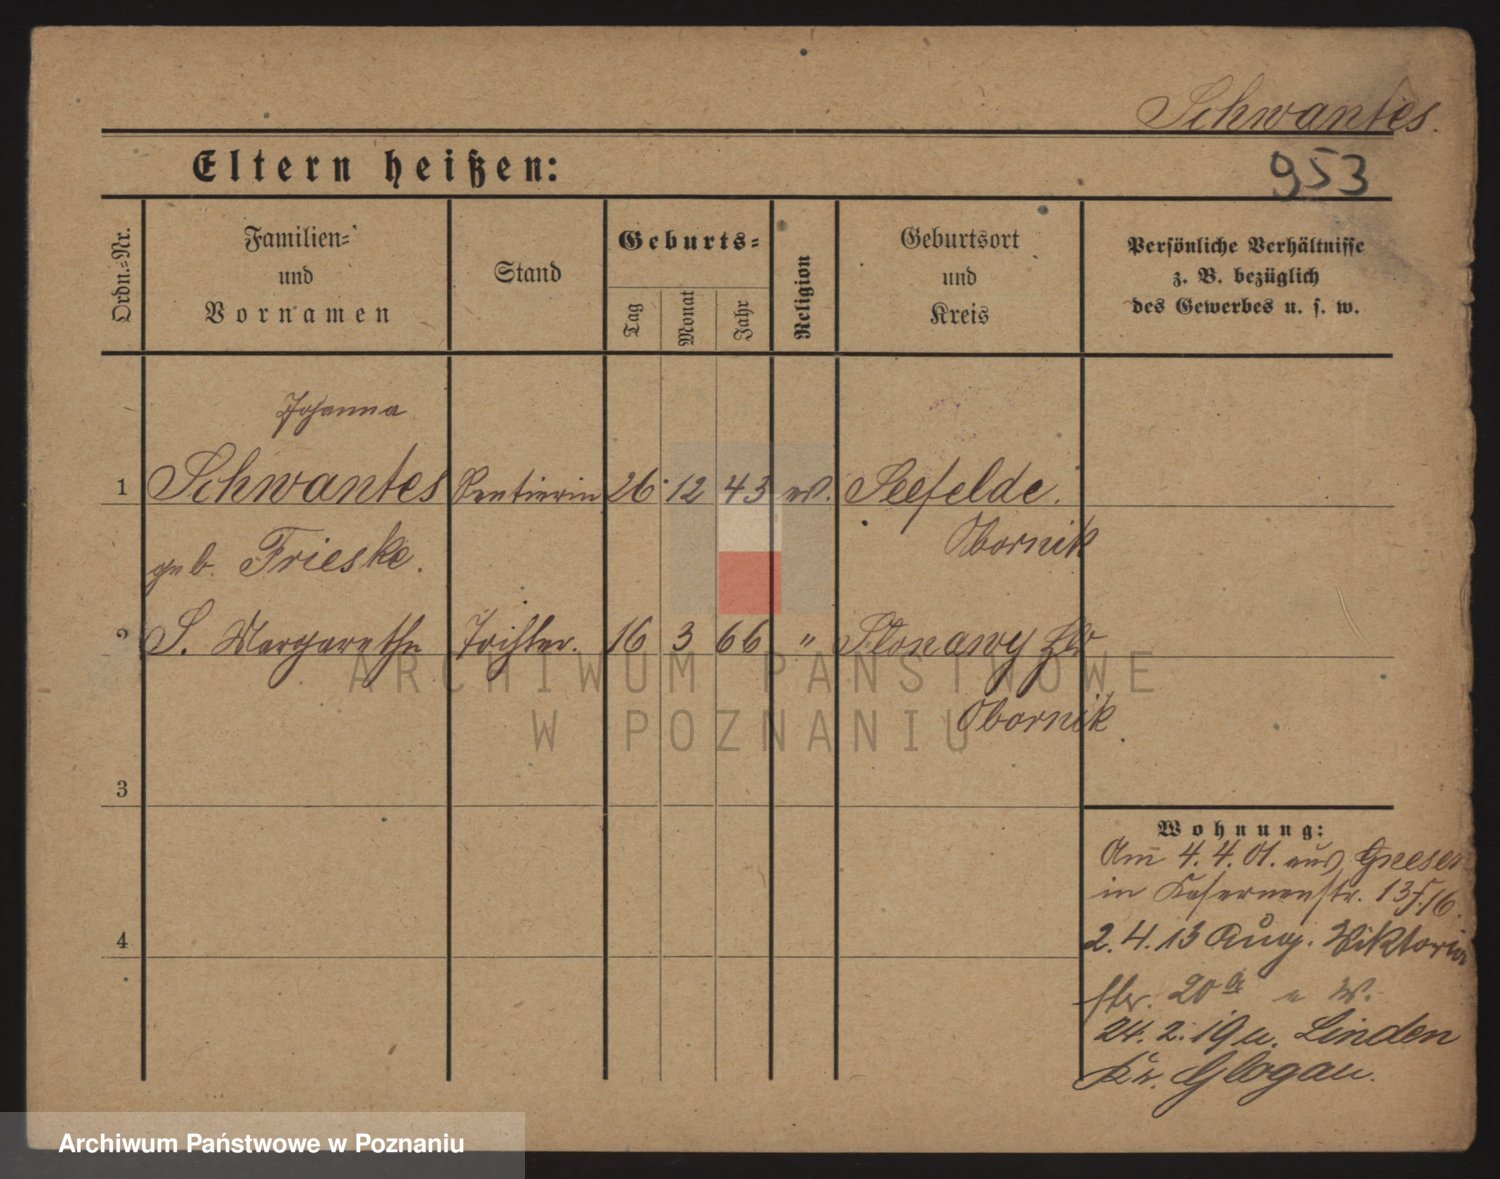 Schwantes.
Eltern heißen:
953
Ordn.-Nr.
Familien-
und
Vornamen
Stand
Geburts-
Tag
Monat
Jahr
Religion
Geburtsort
und
Kreis
Persönliche Verhältnisse
z. B. bezüglich
des Gewerbes u. s. w.
Johanna
1 Schwantes Rentierin 26. 12 43 ev. Seefelde.
Obornik
geb. Frieske.
2 S. Margarethe Tochter. 16 3 66 " Slonawy
Obornik
ARCHIWUM PAŃSTWOWE
W POZNANIU
3
Wohnung:
Am 4. 4. 01. aus Gnesen
in Kasernenstr. 13
2. 4. 13 Aug. Viktoria
20a
4
24. 2. 19 n. Linden
Kr. Glogau.
Archiwum Państwowe w Poznaniu